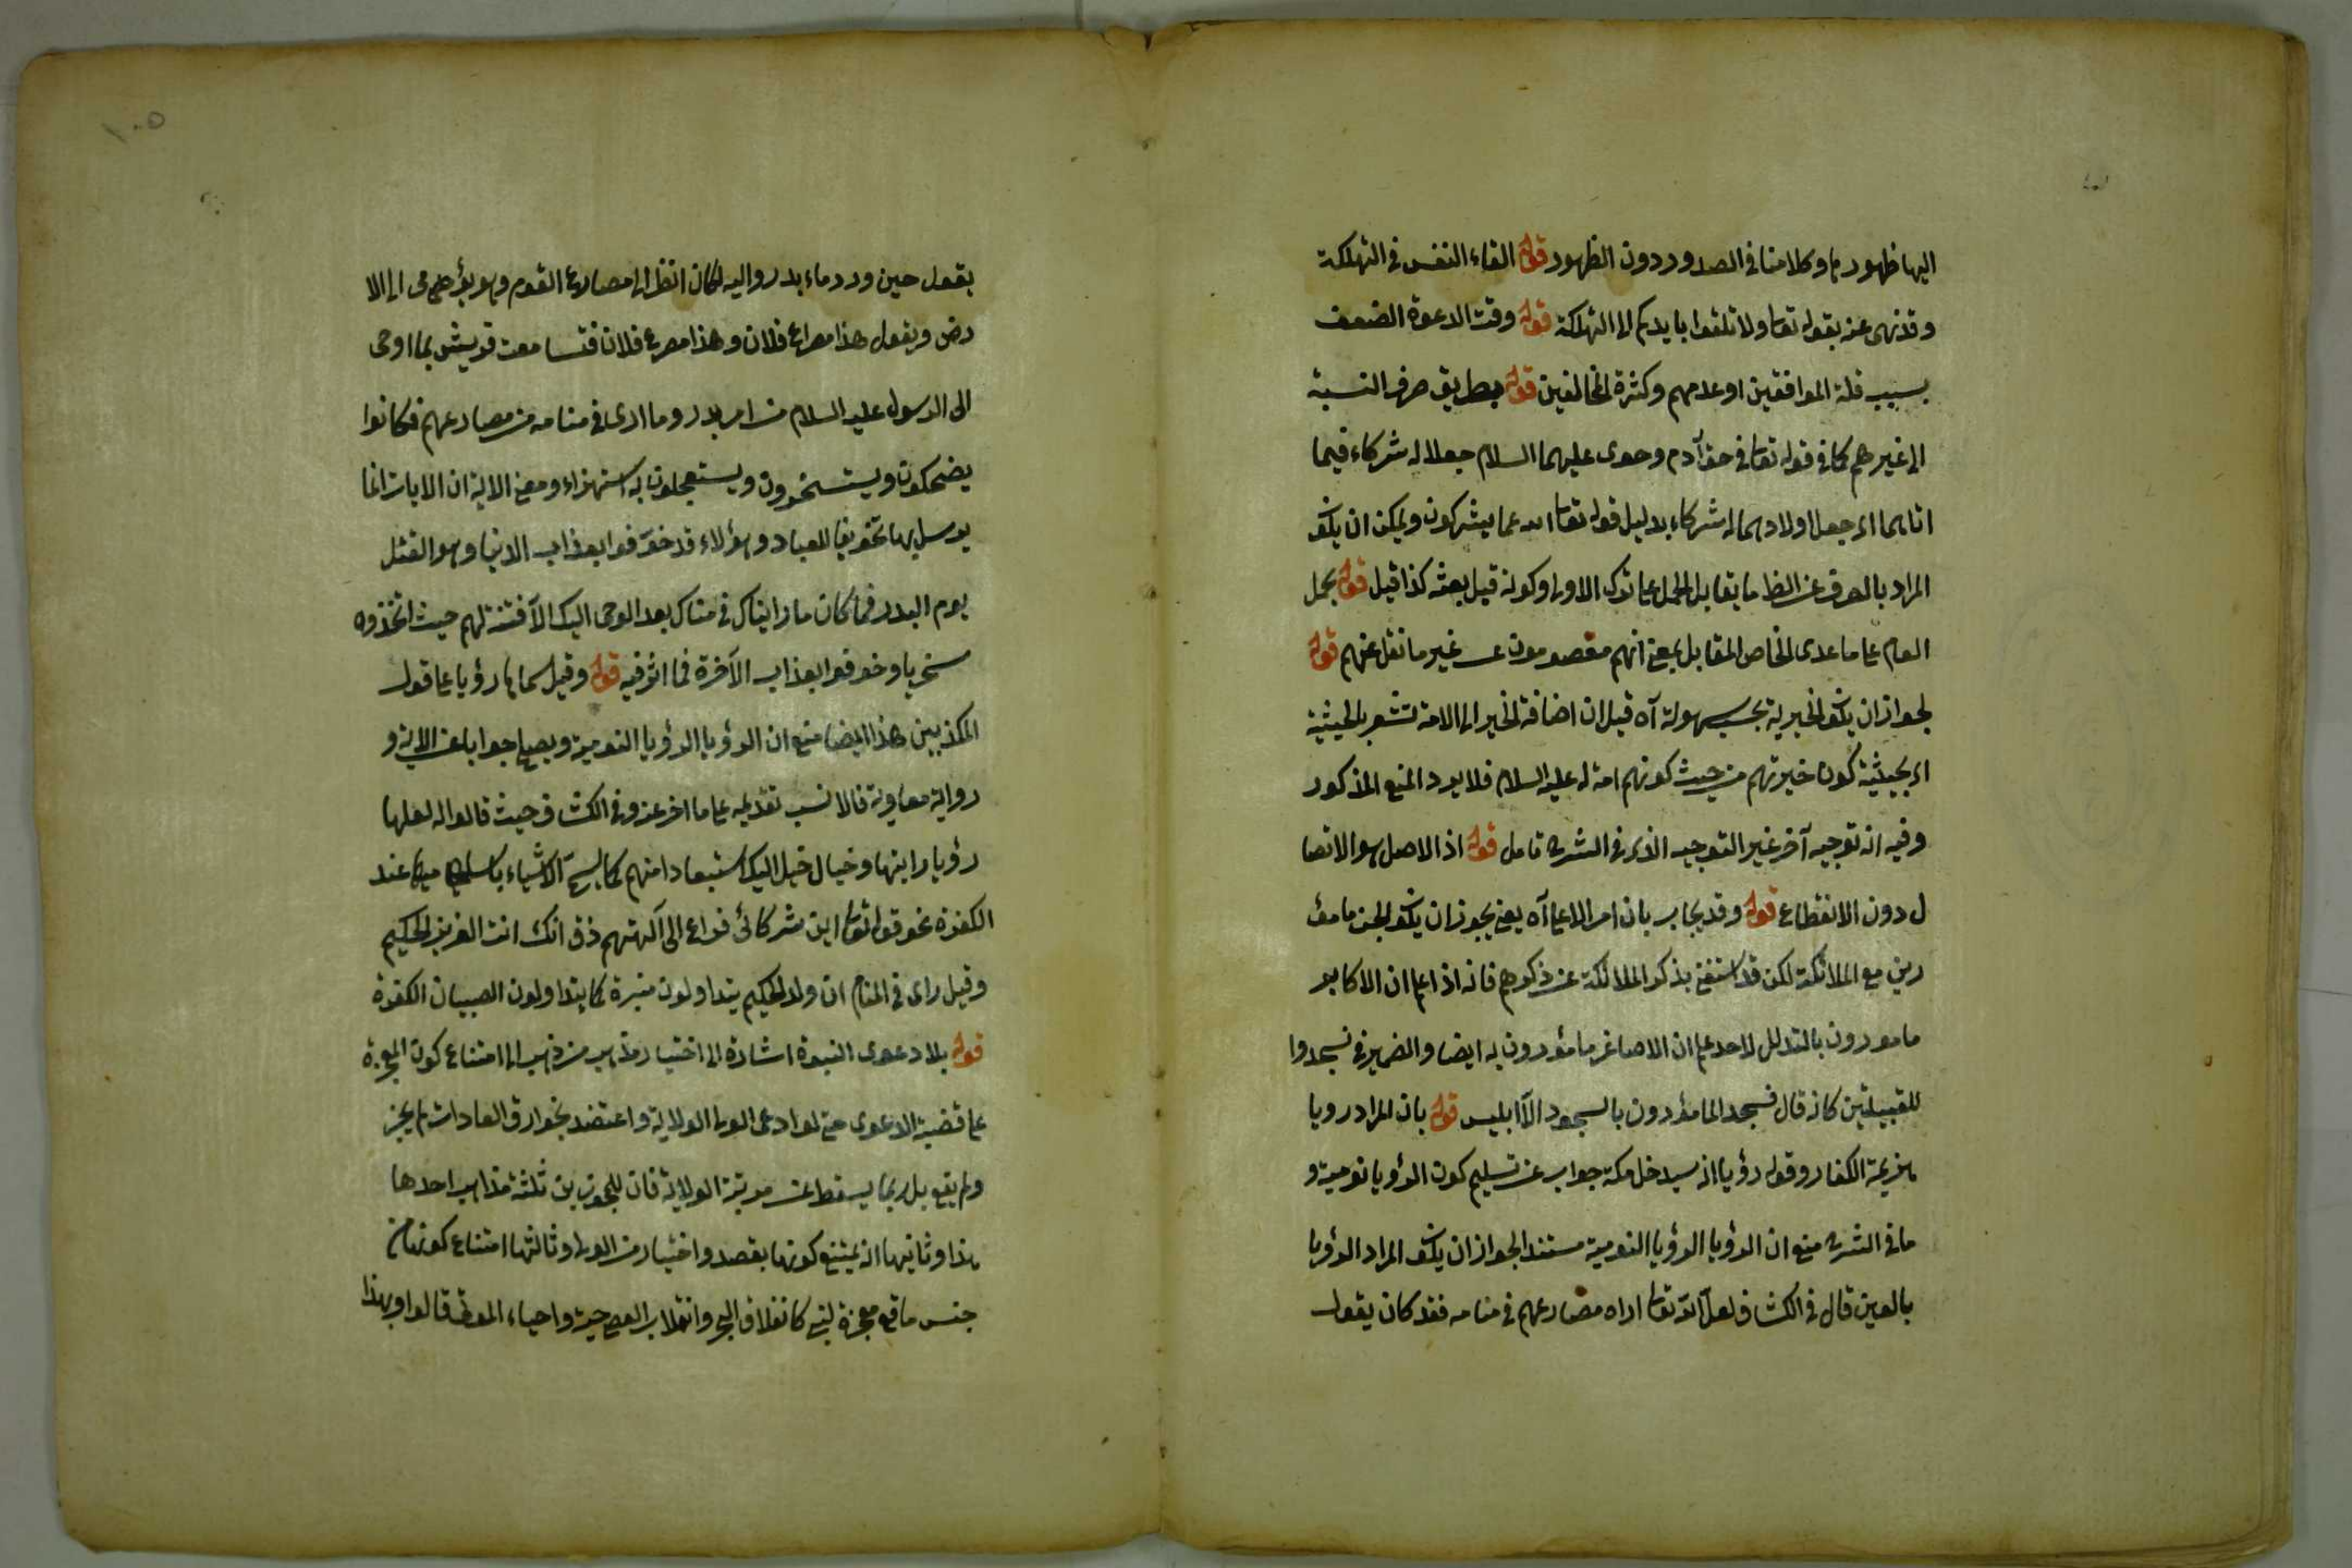 اليها ظهور ما وكلامنا في الصدور دون الظهور قوله القاء النفس في التهلكة
وقد نهى عنه بقوله تعا ولا تلقوا بايديكم الى التهلكة قوله وقت الدعوة الضعف
بسبب قلة الموافقين او عدمهم وكثرة المخالفين قوله بطريق صرف النسبة
الى غيرهم كما في قوله تعا في حق آدم وحوى عليهما السلام جعلا له شركاء فيما
اتاهما اى جعل اولادهما له شركاء بدليل قوله تعا الله عما يشركون ويمكن ان يكون
المراد بالصرف عن الظ ما يقابل الحمل على ترك الاولى وكونه قبل بعثه كذا قيل قوله بحمل
العام على ما عدى الخاص المقابل بمعنى انهم معصومون عن غير ما نقل عنهم قوله
لجواز ان يكون الخيرية بحسب سهولة آه قيل ان اضافة الخير الى الامة تشعر بالحيثية
اى بحيثية كون خيرتهم من حيث كونهم امة له عليه السلام فلا يرد المنع المذكور
وفيه انه توجيه آخر غير التوجيه الذى في الشرح تامل قوله اذ الاصل هو الاتصا
ل دون الانقطاع قوله وقد يجاب بان امر الاعلى آه يعنى يجوز ان يكون الجن مامو
رين مع الملائكة لكن قد استغنى بذكر الملائكة عن ذكرهم فانه اذا علم ان الاكابر
مامورون بالتذلل لاحد علم ان الاصاغر مامورون به ايضا والضمير في فسجدوا
للقبيلتين كانه قال فسجد المامورون بالسجود الا ابليس قوله بان المراد رويا
هزيمة الكفار وقوله رؤيا انه سيدخل مكة جواب عن تسليم كون الرؤيا نومية و
ما في الشرح منع ان الرؤيا الرؤيا النومية مستندا لجواز ان يكون المراد الرؤيا
بالعين قال في الكشاف لعل الله تعا اراه مصارعهم في منامه فقد كان يقول
١٠٥
بقول حين ورد ماء بدر والله لكان انظر الى مصارع القوم وهو يؤمى الى الا
رض ويقول هذا مصراع فلان وهذا مصرع فلان فتسامعت قريش بما اوحى
الى الرسول عليه السلام من امر بدر وما ارى في منامه من مصارعهم فكانوا
يضحكون ويستسخرون ويستعجلون به استهزاء ومعنى الاية ان الايات انما
يرسل بها تخويفا للعباد وهؤلاء قد خوفوا بعذاب الدنيا وهو القتل
يوم البدر فما كان ما رايناك في منامك بعد الوحى اليك الا فتنة لهم حيث اتخذوه
سخريا وخوفوا بعذاب الآخرة فما اثر فيه قوله وقيل سماها رؤيا على قول
المكذبين هذا ايضا منع ان الرؤيا الرؤيا النومية ويصلح جوابا عن الاية و
رواية معاوية فالانسب تقديمه على ما اخر عنه وفي الكشاف حيث قالوا له لعلها
رؤيا رايتها وخيال خيل اليك استبعادا منهم كما يسمى الاشياء باساميها عند
الكفرة نحو قوله تعا اين شركائى فراغ الى آلهتهم ذق انك انت العزيز الحكيم
وقيل راى في المنام ان ولد الحكيم يتداولون منبره كما يتداولون الصبيان الكفرة
قوله بلا دعوى النبوة اشارة الى اختيار مذهب من ذهب الى امتناع كون المعجزة
على قضية الدعوى حتى لو ادعى الولى الولاية واعتضد بخوارق العادات لم يجز
ولم يقع بل ربما يسقط عن مرتبة الولاية فان للمجوزين ثلثة مذاهب احدها
هذا وثانيها انه يمتنع كونها بقصد واختيار من الولى وثالثها امتناع كونها من
جنس ما وقع معجزة لنبى كانفلاق البحر وانقلاب العصى حية واحياء الموتى قالوا وبهذا